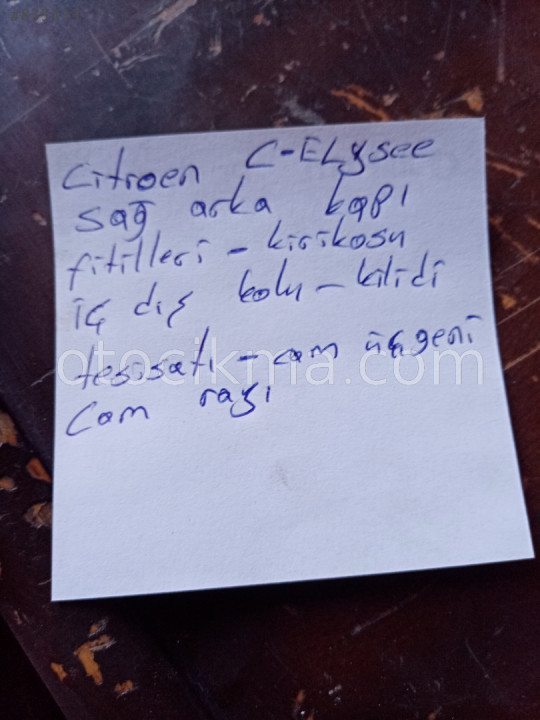 Citroen C-ELysee
sağ arka kapı
fitilleri - kirikosu
iç dış kolu - kilidi
tesisatı - cam üçgeni
otocikma.com
Cam rayı